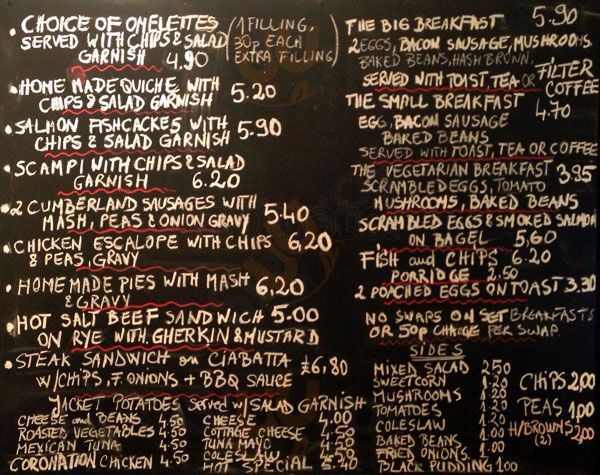 CHOICE OF OMELETTES
SERVED WITH CHIPS & SALAD
GARNISH 4.90
(1 FILLING,
30p EACH
EXTRA FILLING)
HOME MADE QUICHE WITH
CHIPS & SALAD GARNISH 5.20
SALMON FISHCACKES WITH
CHIPS & SALAD GARNISH 5.90
SCAMPI WITH CHIPS & SALAD
GARNISH 6.20
2 CUMBERLAND SAUSAGES WITH
MASH, PEAS & ONION GRAVY 5.40
CHICKEN ESCALOPE WITH CHIPS
& PEAS, GRAVY 6.20
HOME MADE PIES WITH MASH
& GRAVY 6.20
HOT SALT BEEF SANDWICH 5.00
ON RYE WITH GHERKIN & MUSTARD
STEAK SANDWICH ON CIABATTA £6,80
W/CHIPS, F. ONIONS + BBQ SAUCE
JACKET POTATOES SERVED W/SALAD GARNISH
CHEESE and BEANS 4.50
ROASTED VEGETABLES 4.50
MEXICAN TUNA 4.50
CORONATION CHICKEN 4.50
CHEESE 4.00
COTTAGE CHEESE 4.50
TUNA MAYO 4.50
COLESLAW 4.50
HOT SPECIAL 5.40
THE BIG BREAKFAST 5.90
2 EGGS, BACON SAUSAGE, MUSHROOMS
BAKED BEANS, HASH BROWN,
SERVED WITH TOAST, TEA OR FILTER
COFFEE
THE SMALL BREAKFAST 4.70
EGG, BACON SAUSAGE
BAKED BEANS
SERVED WITH TOAST, TEA OR COFFEE
THE VEGETARIAN BREAKFAST 3.95
SCRAMBLED EGGS, TOMATO
MUSHROOMS, BAKED BEANS
SCRAMBLED EGGS & SMOKED SALMON
ON BAGEL 5,60
FISH and CHIPS 6.20
PORRIDGE 2.50
2 POACHED EGGS ON TOAST 3.30
NO SWAPS ON SET BREAKFASTS
OR 50p CHARGE PER SWAP
SIDES
MIXED SALAD 2.50
SWEETCORN 1.20
MUSHROOMS 1.20
TOMATOES 1.20
COLESLAW 1.20
BAKED BEANS 1.00
FRIED ONIONS 1.00
BLACK PUDDING 1.00
CHIPS 2,00
PEAS 1,00
H/BROWNS 2,00
(2)